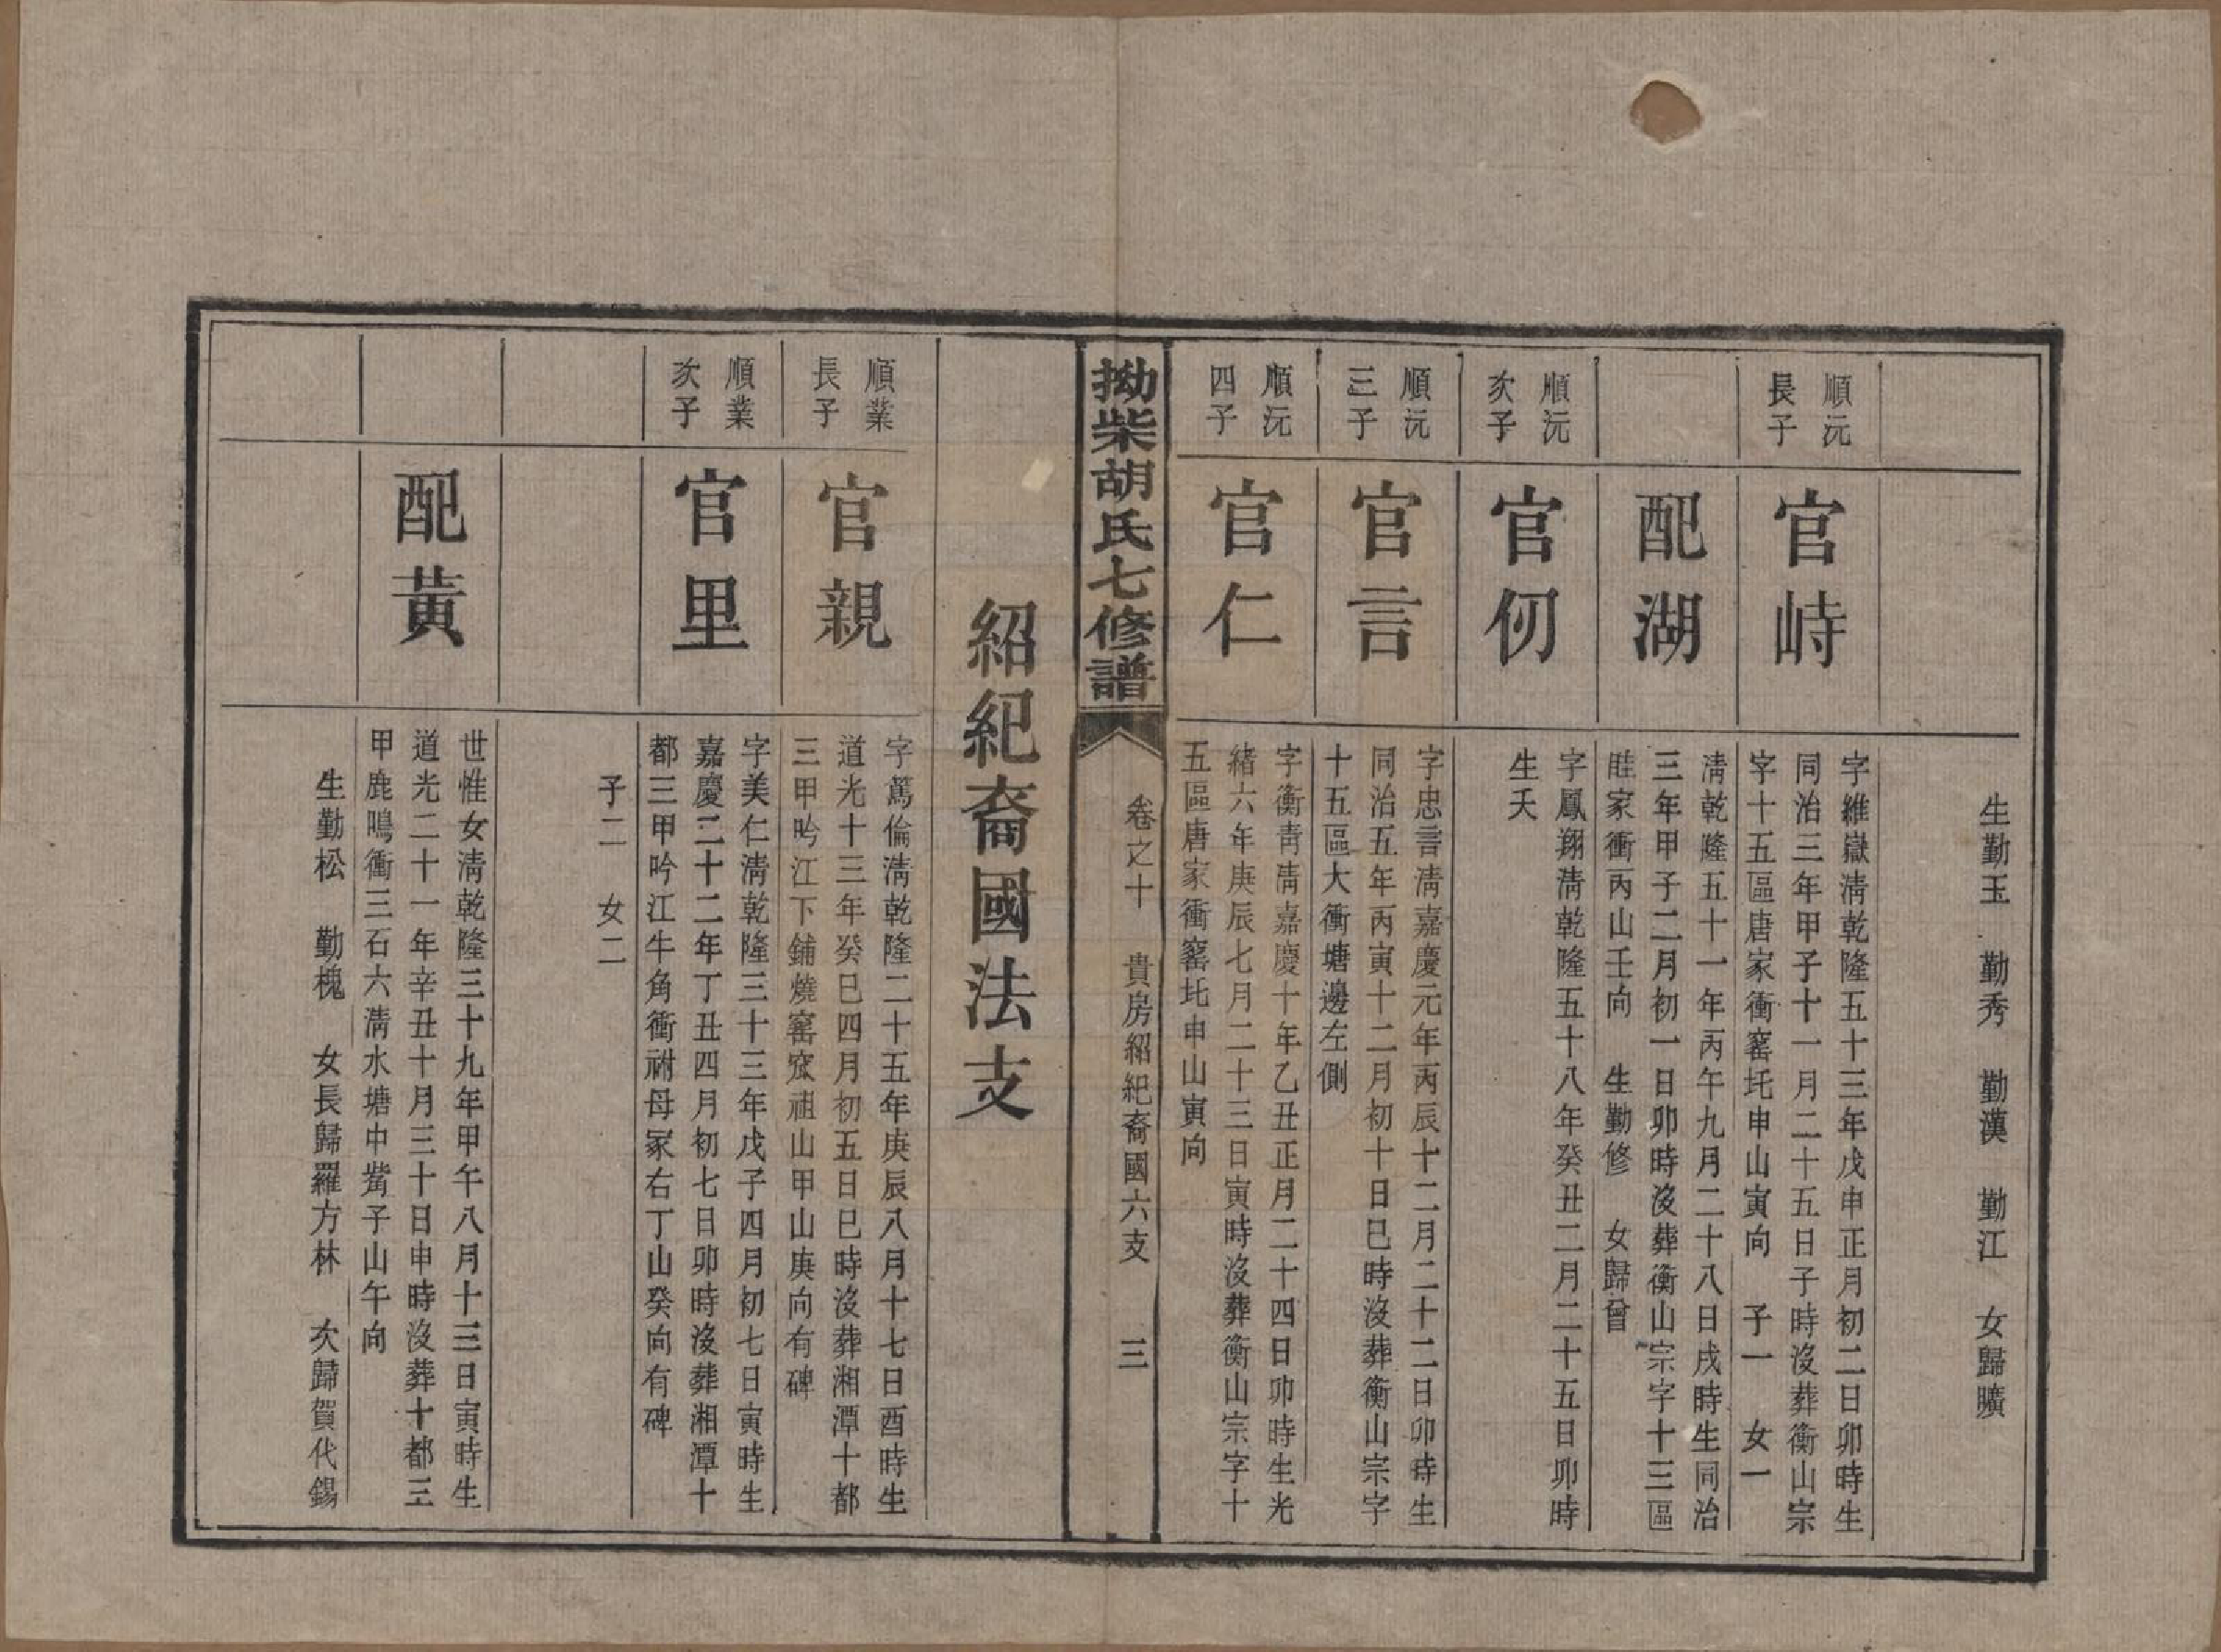 生勤玉　勤秀　勤漢　勤江　女歸曠
順沅
長子
官峙
字維嶽淸乾隆五十三年戊申正月初二日卯時生
同治三年甲子十一月二十五日子時沒葬衡山宗
字十五區唐家衝窰圫申山寅向　子一　女一
配湖
淸乾隆五十一年丙午九月二十八日戌時生同治
三年甲子二月初一日卯時沒葬衡山宗字十三區
眭家衝丙山壬向　生勤修　女歸曾
順沅
次子
官仞
字鳳翔淸乾隆五十八年癸丑二月二十五日卯時
生夭
順沅
三子
官言
字忠言淸嘉慶元年丙辰十二月二十二日卯時生
同治五年丙寅十二月初十日巳時沒葬衡山宗字
十五區大衝塘邊左側
順沅
四子
官仁
字衡靑淸嘉慶十年乙丑正月二十四日卯時生光
緒六年庚辰七月二十三日寅時沒葬衡山宗字十
五區唐家衝窰圫申山寅向
拗柴胡氏七修譜
卷之十　貴房紹紀裔國六支　三
紹紀裔國法支
順業
長子
官親
字萬倫淸乾隆二十五年庚辰八月十七日酉時生
道光十三年癸巳四月初五日巳時沒葬湘潭十都
三甲吟江下鋪燒窰窊祖山甲山庚向有碑
順業
次子
官里
字美仁淸乾隆三十三年戊子四月初七日寅時生
嘉慶二十二年丁丑四月初七日卯時沒葬湘潭十
都三甲吟江牛角衝祔母冢右丁山癸向有碑
子二　女二
配黃
世惟女淸乾隆三十九年甲午八月十三日寅時生
道光二十一年辛丑十月三十日申時沒葬十都三
甲鹿鳴衝三石六淸水塘中嵩子山午向
生勤松　勤槐　女長歸羅方林　次歸賀代錫